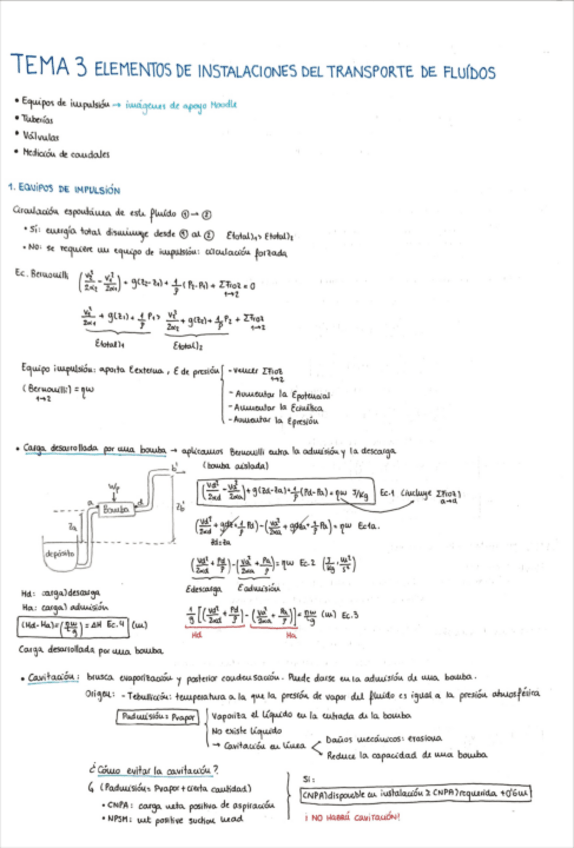 TEMA 3 ELEMENTOS DE INSTALACIONES DEL TRANSPORTE DE FLUÍDOS
• Equipos de impulsión → imágenes de apoyo Moodle
• Tuberías
• Válvulas
• Medición de caudales
1. EQUIPOS DE IMPULSIÓN
Circulación espontánea de este fluido ① → ②
• Sí: energía total disminuye desde ① al ② Etotal)₁ > Etotal)₂
• NO: se requiere un equipo de impulsión: circulación forzada
Ec. Bernouilli (V₂²/2α₂ - V₁²/2α₁) + g(z₂-z₁) + 1/ρ (P₂-P₁) + ΣFroz 1→2 = 0
V₁²/2α₁ + g(z₁) + 1/ρ P₁ > V₂²/2α₂ + g(z₂) + 1/ρ P₂ + ΣFroz 1→2
Etotal)₁ Etotal)₂
Equipo impulsión: aporta Eexterna, E de presión - vencer ΣFroz 1→2
(Bernouilli) 1→2 = ηw
- Aumentar la Epotencial
- Aumentar la Ecinética
- Aumentar la Epresión
• Carga desarrollada por una bomba → aplicamos Bernouilli entre la admisión y la descarga
(bomba aislada)
b'
Wp
a
d
Bomba
Za
Zb'
depósito
(Vd²/2αd - Va²/2αa) + g(zd-za) + 1/ρ (Pd-Pa) = ηw J/kg Ec.1 (incluye ΣFroz) a→d
(Vd²/2αd + gzd + 1/ρ Pd) - (Va²/2αa + gza + 1/ρ Pa) = ηw Ec1a.
zd=za
(Vd²/2αd + Pd/ρ) - (Va²/2αa + Pa/ρ) = ηw Ec.2 (J/kg, m²/s²)
Edescarga Eadmisión
Hd: carga)descarga
Ha: carga)admisión
1/g [(Vd²/2αd + Pd/ρ) - (Va²/2αa + Pa/ρ)] = ηw/g (m) Ec.3
Hd Ha
(Hd-Ha) = (ηw/g) = ΔH Ec.4 (m)
Carga desarrollada por una bomba
• Cavitación: brusca evaporización y posterior condensación. Puede darse en la admisión de una bomba.
Origen: - Tebullición: temperatura a la que la presión de vapor del fluido es igual a la presión atmosférica
Padmisión ≤ Pvapor
Vaporiza el líquido en la entrada de la bomba
No existe líquido
→ Cavitación en línea
Daños mecánicos: erosiona
Reduce la capacidad de una bomba
¿Cómo evitar la cavitación?
↳ (Padmisión > Pvapor + cierta cantidad)
• CNPA: carga neta positiva de aspiración
• NPSH: net positive suction head
Si:
CNPA)disponible en instalación ≥ CNPA)requerida + 0'6m
¡NO HABRÁ CAVITACIÓN!